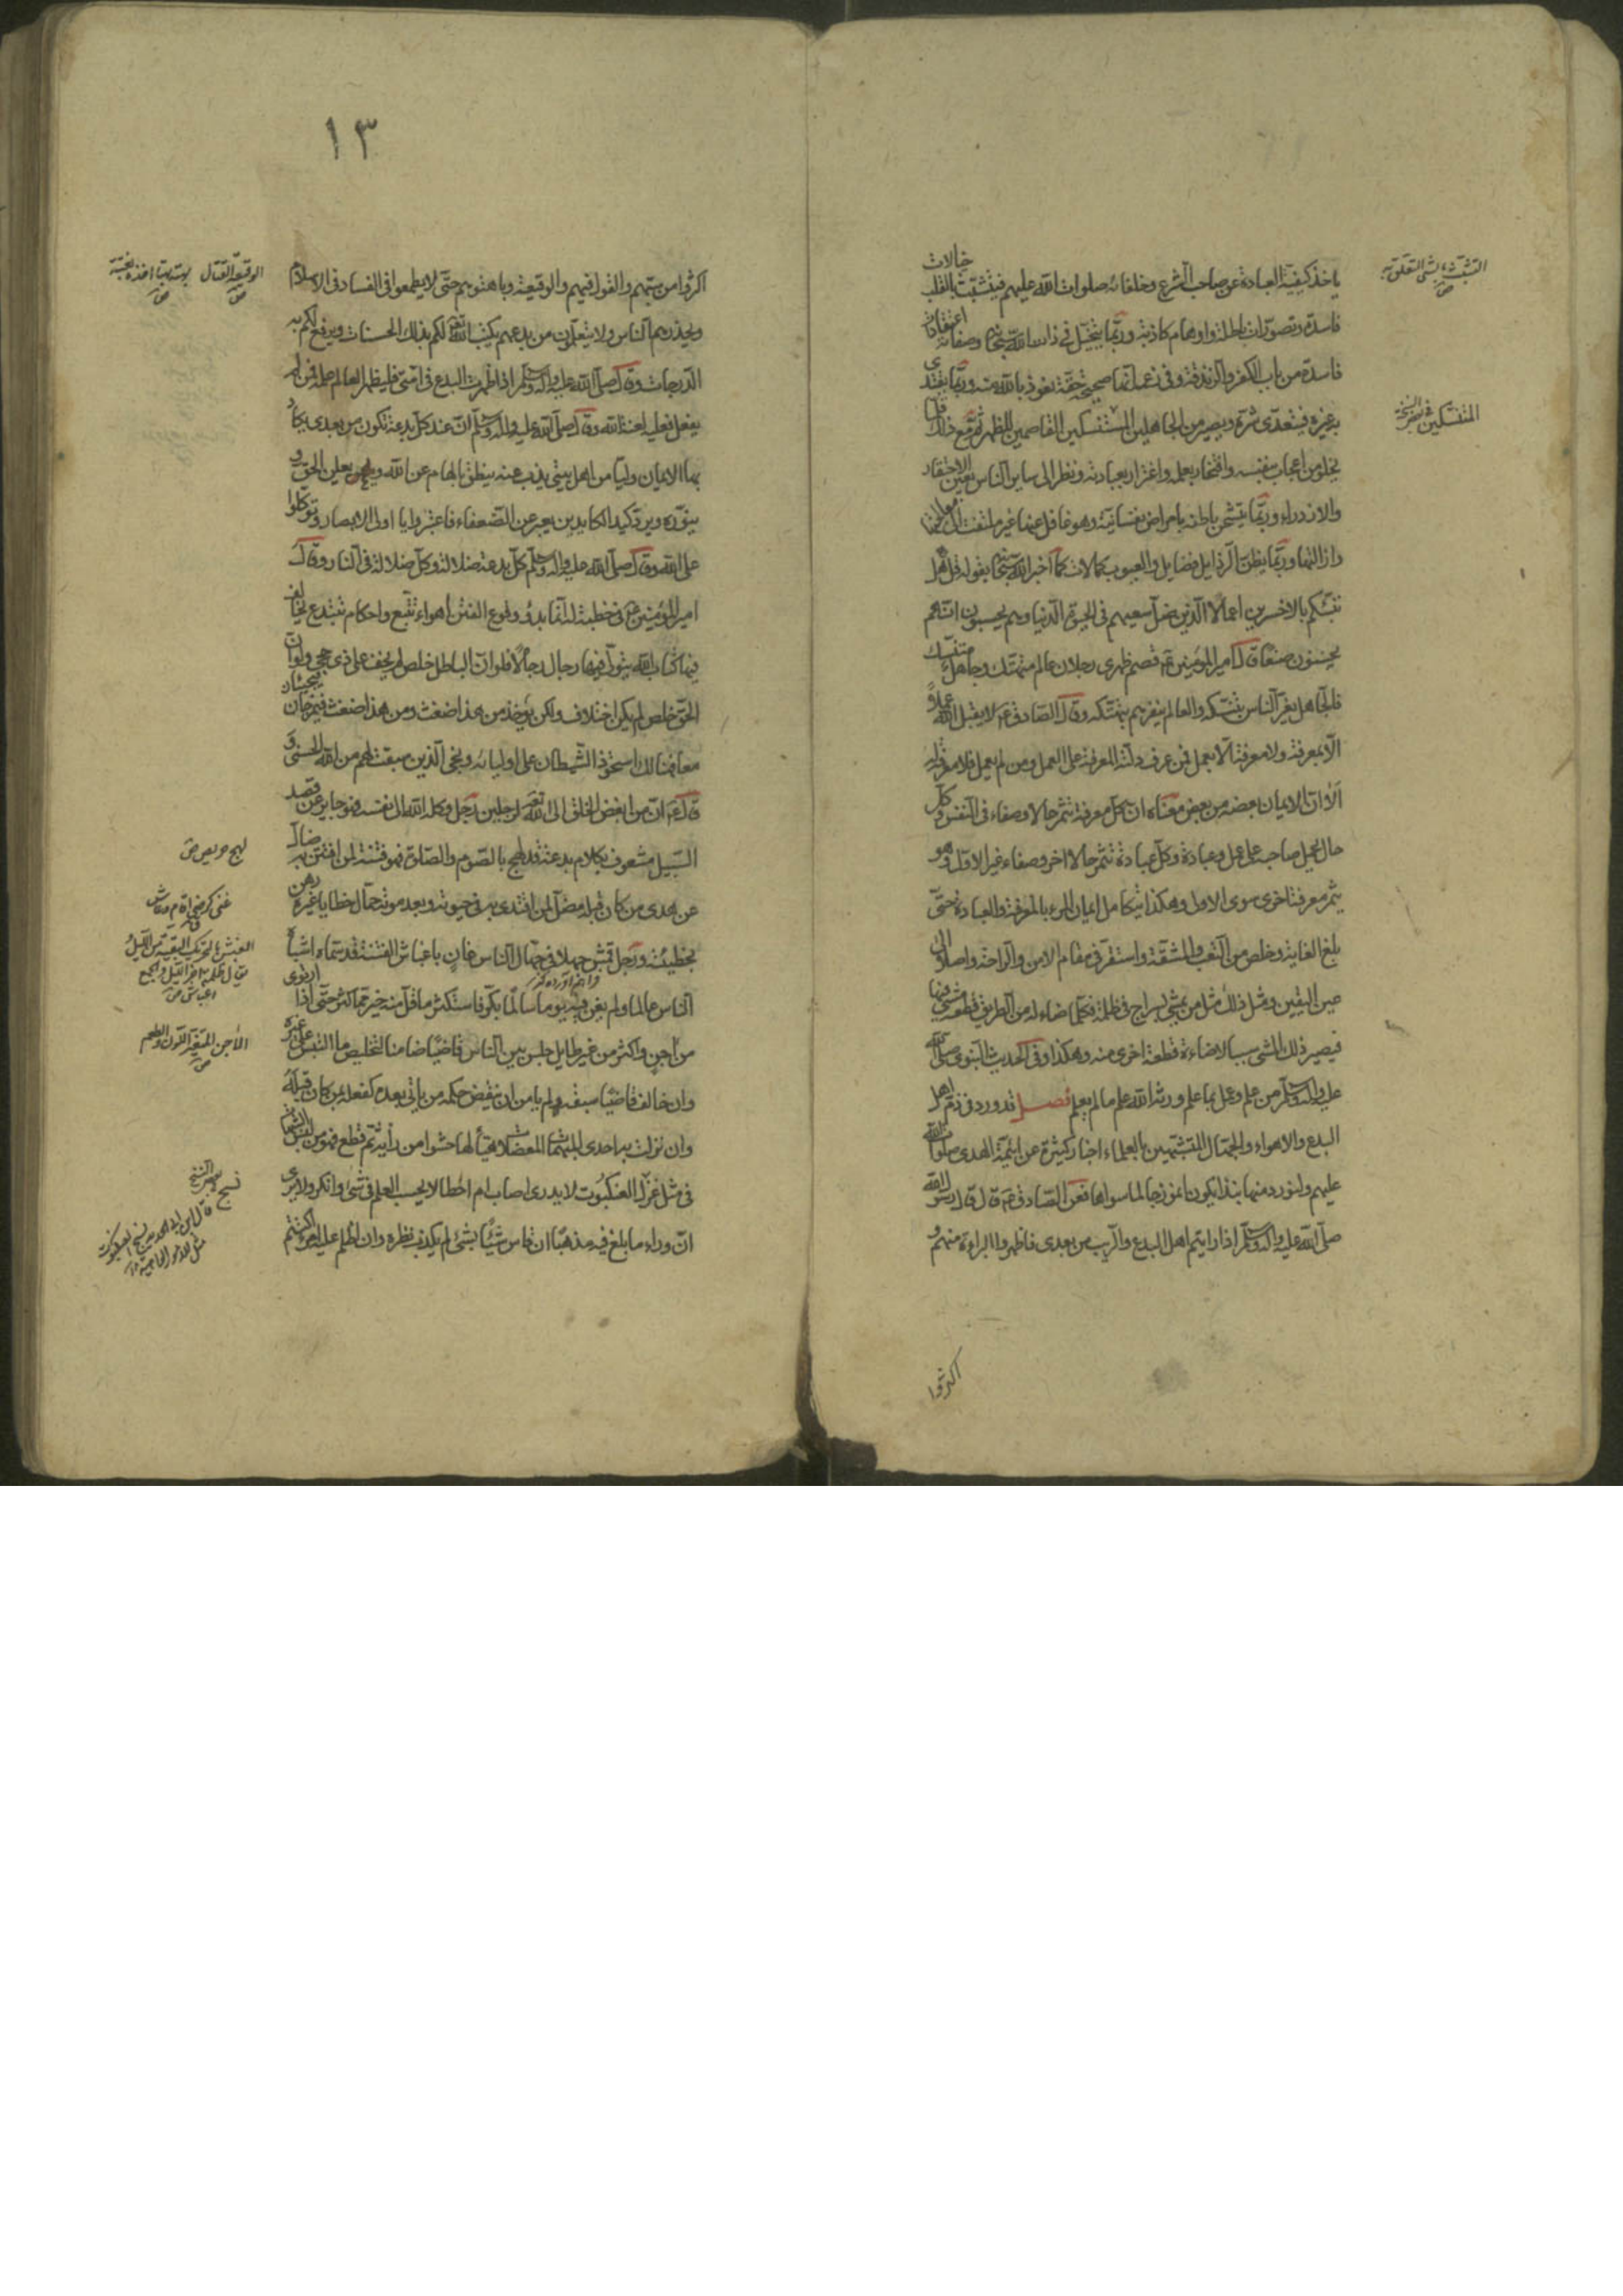 ياخذ كيفيّة العبادة عن صاحب الشرع وخلفائه صلوات الله عليهم فيتشبّث بالقلب خيالات
فاسدة وتصوّرات باطلة واوهام كاذبة وربّما يتخيّل في ذات الله سبحانه وصفاته اعتقادات
فاسدة من باب الكفر والزندقة وفي زعمه انها صحيحة حقة نعوذ بالله منه وربّما يقتدى
بغيره فيتعدّى شرّه ويصير من الجاهلين المتنسكين القاصمين للظهر ثم مع ذلك قلّما
يخلو من اعجاب بنفسه وافتخار بعلمه واغترار بعبادته ونظر الى ساير الناس بعين الاحتقار
والازدراء وربّما يشحن باطنه بامراض نفسانيّة وهو غافل عنها غير ملتفت الى
دائها وربّما يظنّ الرذايل فضايل والعيوب كمالات كما اخبر الله سبحانه بقوله قل هل
ننبّئكم بالاخسرين اعمالا الّذين ضلّ سعيهم فى الحيوة الدّنيا وهم يحسبون انّهم
يحسنون صنعا قال امير المؤمنين ع قصم ظهرى رجلان عالم متهتّك وجاهل متنسّك
فالجاهل يغرّ الناس بتنسّكه والعالم ينفرهم بتهتّكه وقال الصّادق ع لا يقبل الله عملاً
الّا بمعرفة ولا معرفة الّا بعمل فمن عرف دلّته المعرفة على العمل ومن لم يعمل فلا معرفة له
الا انّ الايمان بعضه من بعض معناه انّ كل معرفة تثمر حالا وصفاء فى النفس وكل
حال يحمل صاحبه على عمل وعبادة وكل عبادة تثمر حالا اخر وصفاء غير الاوّل وهو
يثمر معرفة اخرى سوى الاولى وهكذا يتكامل ايمان المرء بالمعرفة والعبادة حتّى
بلغ الغاية وخلص من التّعب والمشقّة واستقرّ فى مقام الامن والراحة واصلا الى
عين اليقين ومثل ذلك مثل من يمشى بسراج فى ظلمة فكلما اضاء له من الطريق قطعة مشى فيها
فيصير ذلك المشى سببا لاضاءة قطعة اخرى منه وهكذا وفى الحديث النبوى صلّى الله
عليه واله وسلّم من علم وعمل بما علم ورّثه الله علم ما لم يعلم فصل قد ورد فى ذم اهل
البدع والاهواء والجهّال المتشبّهين بالعلماء اخبار كثيرة عن ائمّة الهدى صلوات الله
عليهم ولنورد منها نبذا يكون انموذجا لما سواها فعن الصّادق ع قال قال رسول الله
صلّى الله عليه واله وسلّم اذا رايتم اهل البدع والرّيب من بعدى فاظهروا البراءة منهم و
اكثروا
التشبّث بالشى التعلّق به
المتنسّكين
١٣
اكثروا من سبّهم والقول فيهم والوقيعة وباهتوهم حتّى لا يطمعوا فى الفساد فى الاسلام
ويحذرهم الناس ولا يتعلّمون من بدعهم يكتب الله تعالى لكم بذلك الحسنات ويرفع لكم به
الدّرجات وقال صلّى الله عليه واله وسلّم اذا ظهرت البدع فى امّتى فليظهر العالم علمه فمن لم
يفعل فعليه لعنة الله وقال صلّى الله عليه واله وسلّم انّ عند كلّ بدعة تكون من بعدى يكاد
بها الايمان وليّا من اهل بيتى يذبّ عنه ينطق بالهام من الله ويعلن الحقّ و
ينوّره ويردّ كيد الكايدين يعبر عن الضّعفاء فاعتبروا يا اولى الابصار وتوكّلوا
على الله وقال صلّى الله عليه واله وسلّم كلّ بدعة ضلالة وكلّ ضلالة فى النار وقال
امير المؤمنين ع فى خطبة له انّما بدؤ وقوع الفتن اهواء تتّبع واحكام تبتدع يخالف
فيها كتاب الله يتولّى فيها رجال رجالا فلو انّ الباطل خلص لم يخف على ذى حجى ولو انّ
الحقّ خلص لم يكن اختلاف ولكن يؤخذ من هذا ضغث ومن هذا ضغث فيمزجان فيجيئان
معا فهنالك استحوذ الشّيطان على اوليائه ونجى الّذين سبقت لهم من الله الحسنى و
قال ع انّ من ابغض الخلق الى الله تعالى لرجلين رجل وكله الله الى نفسه فهو جاير عن قصد
السّبيل مشعوف بكلام بدعة قد لهج بالصّوم والصّلوة فهو فتنة لمن افتتن به ضالّ
عن هدى من كان قبله مضلّ لمن اقتدى به فى حيوته وبعد موته حمّال خطايا غيره رهن
بخطيئته ورجل قمش جهلا فى جهّال الناس عانٍ باغباش الفتنة قد سمّاه اشباه
الناس عالما ولم يغن فيه يوما سالما بكّر فاستكثر ما قلّ منه خير ممّا كثر حتّى اذا ارتوى
من اجن واكثر من غير طايل جلس بين الناس قاضيا ضامنا لتخليص ما التبس على غيره
وان خالف قاضيا سبقه لم يامن ان ينقض حكمه من ياتى بعده كفعله بمن كان قبله
وان نزلت به احدى المبهمات المعضلات هيّأ لها حشوا من رأيه ثم قطع فهو من لبس الشبهات
فى مثل غزل العنكبوت لا يدرى اصاب ام اخطا لا يحسب العلم فى شئ ممّا انكر ولا يرى
انّ وراء ما بلغ فيه مذهبا ان قاس شيئا بشئ لم يكذّب نظره وان اظلم عليه امر اكتتم
الوقيعة القتال
بهته بهتا اخذه بغتة
لهج حريص
الغبش بالتحريك البقية من الليل
الاجن المتغيّر اللون والطعم